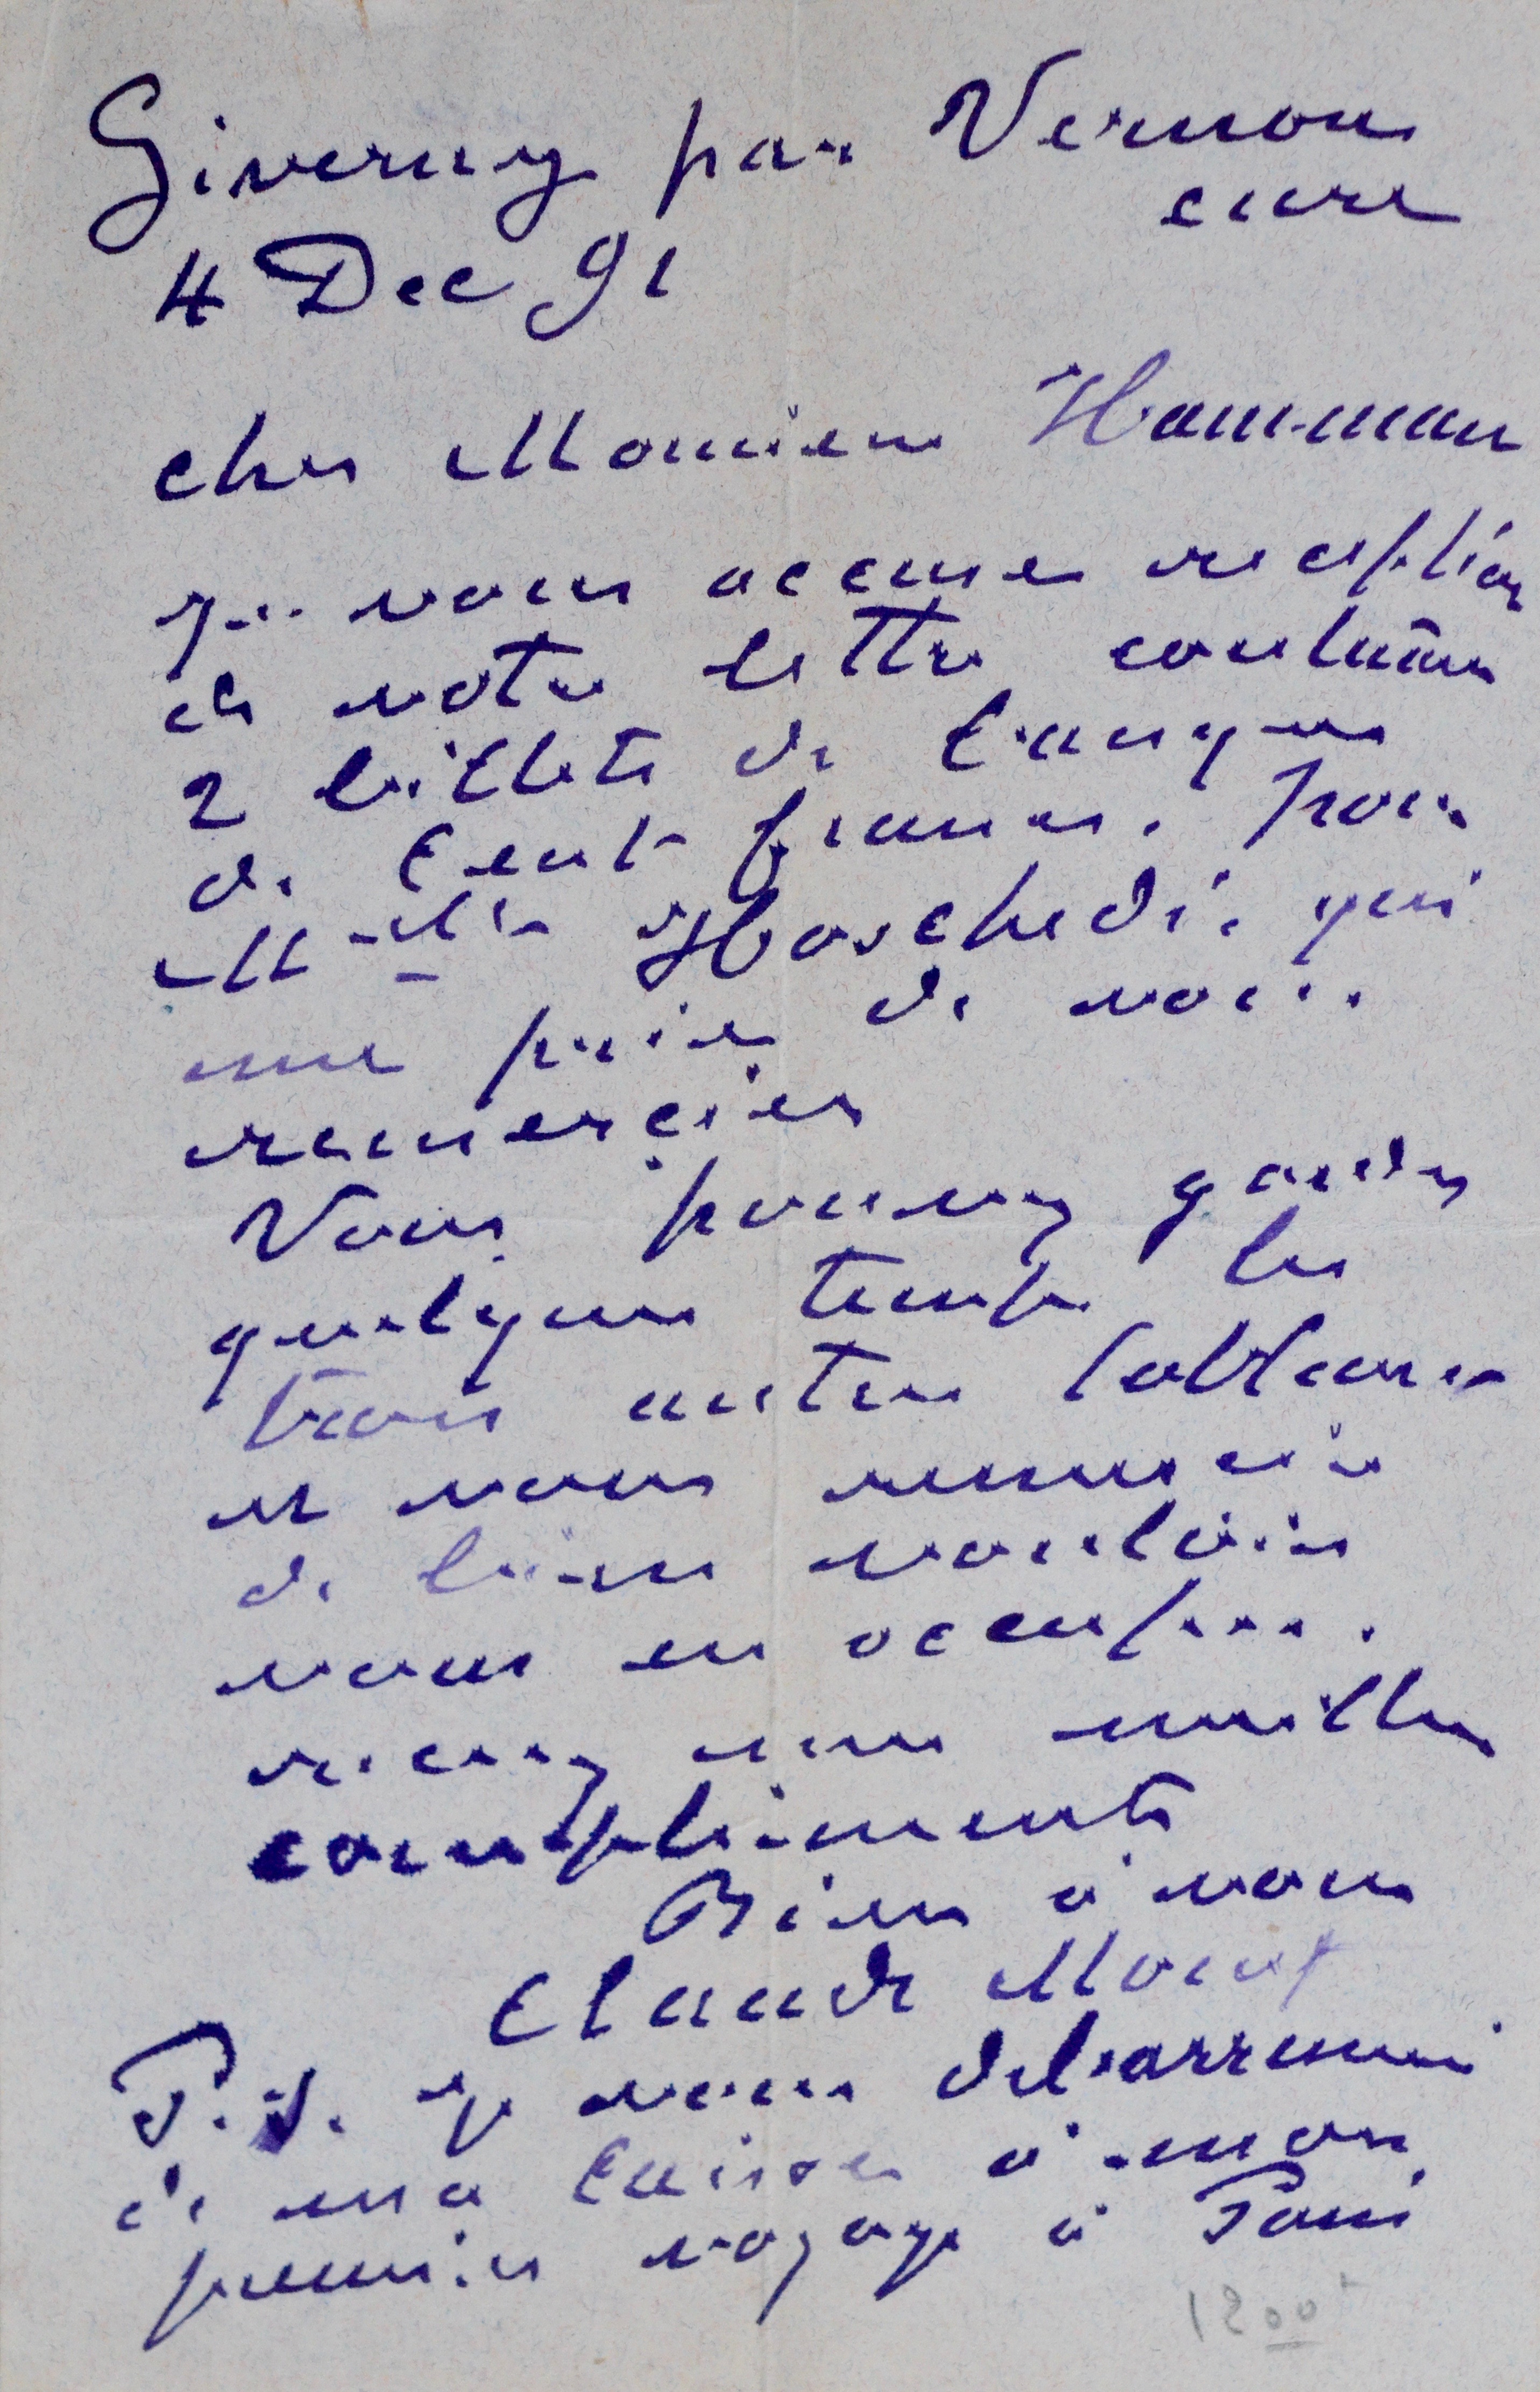 Giverny par Vernon
eure
4 Dec 91
cher Monsieur Hamman
je vous accuse reception
de votre lettre contenant
2 billets de banque
de cent francs. pour
Melle Hoschedé qui
me prie de vous
remercier
Vous pouvez garder
quelque temps les
trois autres tableaux
et vous remercie
de bien vouloir
vous en occuper.
recevez mes meilleurs
compliments
Bien à vous
Claude Monet
P.S. je vous debarrasserai
de ma caisse à mon
premier voyage à Paris